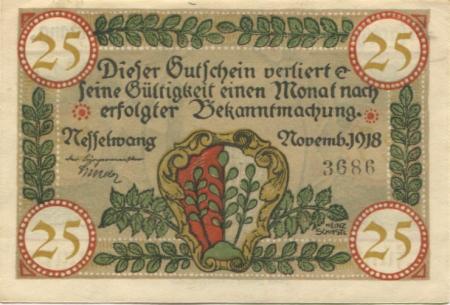 25
25
Dieser Gutschein verliert
seine Gültigkeit einen Monat nach
erfolgter Bekanntmachung.
Nesselwang Novemb. 1918
Der Bürgermeister
3686
HEINZ
25
25